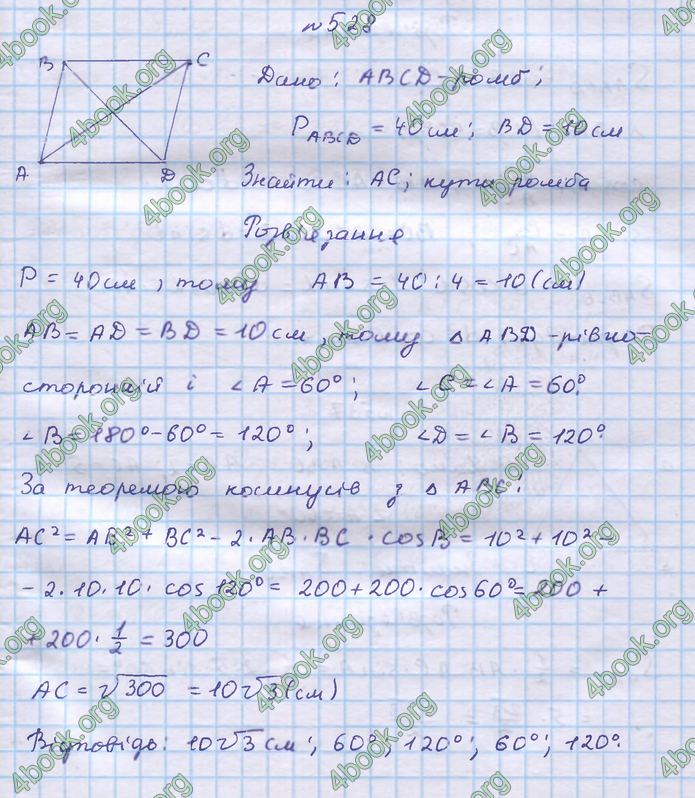 №528
B C
A D
Дано: ABCD - ромб;
P ABCD = 40 см; BD = 10 см
Знайти: AC; кути ромба
Розв'язання
P = 40 см, тому AB = 40 : 4 = 10 (см)
AB = AD = BD = 10 см, тому △ ABD - рівно-
сторонній і ∠A = 60°; ∠C = ∠A = 60°.
∠B = 180° - 60° = 120°; ∠D = ∠B = 120°.
За теоремою косинусів з △ ABC:
AC² = AB² + BC² - 2 · AB · BC · cos B = 10² + 10² -
- 2 · 10 · 10 · cos 120° = 200 + 200 · cos 60° = 200 +
+ 200 · 1/2 = 300
AC = √300 = 10√3 (см)
Відповідь: 10√3 см; 60°; 120°; 60°; 120°.
4book.org